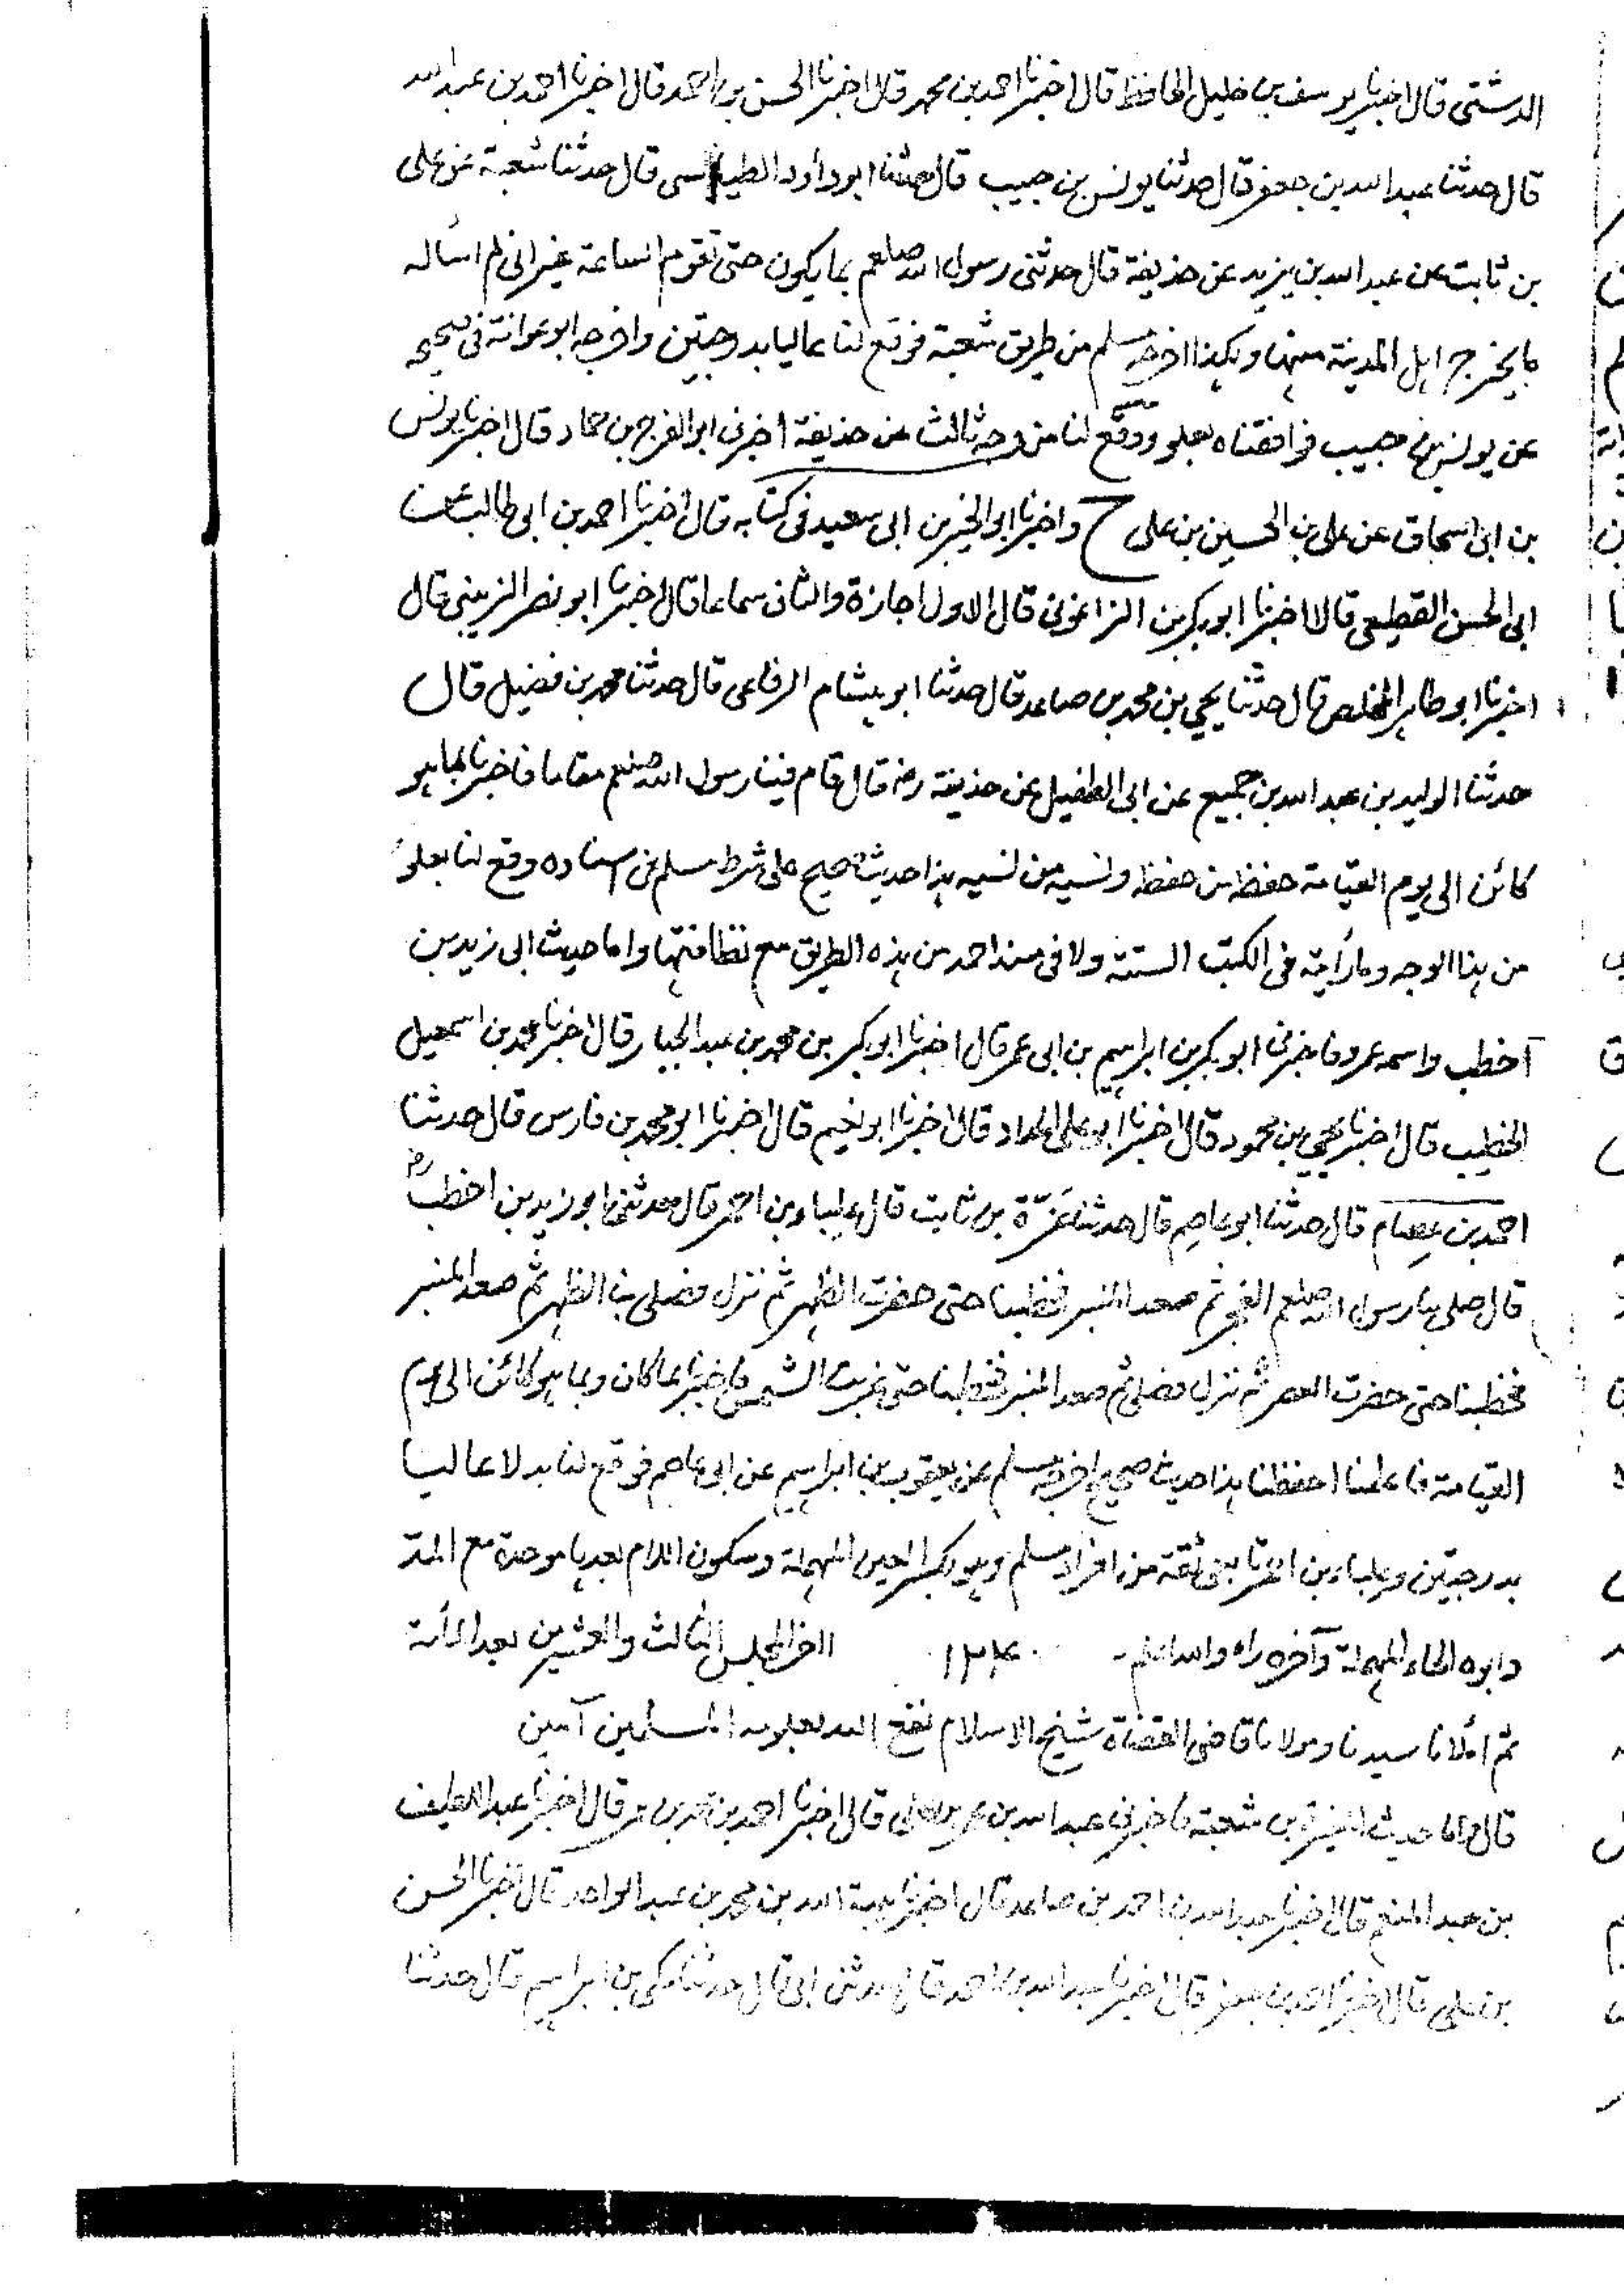 الدشتى قال اخبرنا يوسف بن خليل الحافظ قال اخبرنا احمد بن محمد قال اخبرنا الحسن بن احمد قال اخبرنا احمد بن عبد الله
قال حدثنا عبد الله بن جعفر قال حدثنا يونس بن حبيب قال حدثنا ابو داود الطيالسى قال حدثنا شعبة عن على
بن ثابت عن عبد الله بن يزيد عن حذيفة قال حدثنى رسول الله صلعم بما يكون حتى تقوم الساعة غير انى لم اسأله
ما يخرج اهل المدينة منها وهكذا اخرجه مسلم من طريق شعبة فوقع لنا عاليا بدرجتين واخرجه ابو عوانة فى صحيحه
عن يونس بن حبيب فوافقناه بعلو ووقع لنا من وجه ثالث عن حذيفة اخبرنى ابو الفرج بن حماد قال اخبرنا يونس
بن ابى اسحاق عن على بن الحسين بن على ح واخبرنا ابو الخير بن ابى سعيد فى كتابه قال اخبرنا احمد بن ابى طالب عن
ابى الحسن القطيعى قالا اخبرنا ابو بكر بن الزاغونى قال الاول اجازة والثانى سماعا قال اخبرنا ابو نصر الزينبى قال
اخبرنا ابو طاهر المخلص قال حدثنا يحيى بن محمد بن صاعد قال حدثنا ابو هشام الرفاعى قال حدثنا محمد بن فضيل قال
حدثنا الوليد بن عبد الله بن جميع عن ابى الطفيل عن حذيفة رض قال قام فينا رسول الله صلعم مقاما فاخبرنا بما هو
كائن الى يوم القيامة حفظه من حفظه ونسيه من نسيه هذا حديث صحيح على شرط مسلم فى اسناده وقع لنا بعلو
من هذا الوجه وما رأيته فى الكتب الستة ولا فى مسند احمد من هذه الطريق مع نظافتها واما حديث ابى زيد بن
آخطب واسمه عمرو فاخبرنى ابو بكر بن ابراهيم بن ابى عمر قال اخبرنا ابو بكر بن محمد بن عبد الجبار قال اخبرنا محمد بن اسمعيل
الخطيب قال اخبرنا يحيى بن محمود قال اخبرنا ابو على الحداد قال اخبرنا ابو نعيم قال اخبرنا ابو محمد بن فارس قال حدثنا
احمد بن عصام قال حدثنا ابو عاصم قال حدثنا عزرة بن ثابت قال علباء بن احمر قال حدثنى ابو زيد بن اخطب رض
قال صلى بنا رسول الله صلعم الفجر ثم صعد المنبر فخطبنا حتى حضرت الظهر ثم نزل فصلى بنا الظهر ثم صعد المنبر
فخطبنا حتى حضرت العصر ثم نزل فصلى ثم صعد المنبر فخطبنا حتى غربت الشمس فاخبرنا بما كان وبما هو كائن الى يوم
القيامة فاعلمنا احفظنا هذا حديث صحيح اخرجه مسلم عن يعقوب بن ابراهيم عن ابى عاصم فوقع لنا بدلا عاليا
بدرجتين وعلباء بن احمر تابعى ثقة من افراد مسلم وهو بكسر العين المهملة وسكون اللام بعدها موحدة مع المد
وابوه الحاء المهملة وآخره راء والله اعلم - ١٢٣ آخر المجلس الثالث والعشرين بعد المأئة
ثم املانا سيدنا ومولانا قاضى القضاة شيخ الاسلام نفع الله بعلومه المسلمين آمين
قال واما حديث المغيرة بن شعبة فاخبرنى عبد الله بن عمر بن على قال اخبرنا احمد بن محمد بن عمر قال اخبرنا عبد اللطيف
بن عبد المنعم قال اخبرنا عبد الله بن احمد بن صاعد قال اخبرنا هبة الله بن محمد بن عبد الواحد قال اخبرنا الحسن
بن على قال اخبرنا احمد بن جعفر قال اخبرنا عبد الله بن احمد قال حدثنى ابى قال حدثنا مكى بن ابراهيم قال حدثنا